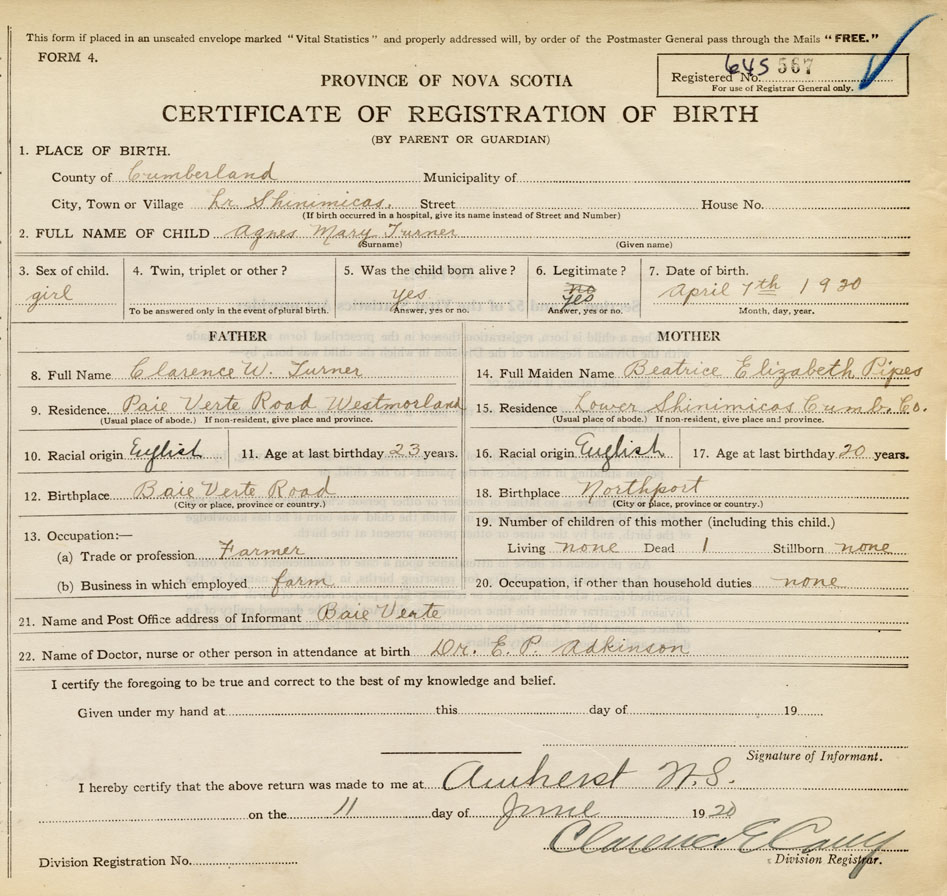 This form if placed in an unsealed envelope marked "Vital Statistics" and properly addressed will, by order of the Postmaster General pass through the Mails "FREE."
FORM 4.
645 567
Registered No.
For use of Registrar General only.
PROVINCE OF NOVA SCOTIA
CERTIFICATE OF REGISTRATION OF BIRTH
(BY PARENT OR GUARDIAN)
1. PLACE OF BIRTH.
County of Cumberland Municipality of
City, Town or Village Lr Shinimicas. Street House No.
(If birth occurred in a hospital, give its name instead of Street and Number)
2. FULL NAME OF CHILD Agnes Mary Turner
(Surname) (Given name)
3. Sex of child. 4. Twin, triplet or other? 5. Was the child born alive? 6. Legitimate? 7. Date of birth.
girl yes no yes April 7th 1920
To be answered only in the event of plural birth. Answer, yes or no. Answer, yes or no. Month, day, year.
FATHER MOTHER
8. Full Name Clarence W. Turner 14. Full Maiden Name Beatrice Elizabeth Pipes
9. Residence. Baie Verte Road Westmorland 15. Residence Lower Shinimicas Cumb. Co.
(Usual place of abode.) If non-resident, give place and province. (Usual place of abode.) If non-resident, give place and province.
10. Racial origin English 11. Age at last birthday 23 years. 16. Racial origin English 17. Age at last birthday 20 years.
12. Birthplace Baie Verte Road 18. Birthplace Northport
(City or place, province or country.) (City or place, province or country.)
13. Occupation:— 19. Number of children of this mother (including this child.)
(a) Trade or profession Farmer Living none Dead 1 Stillborn none
(b) Business in which employed farm 20. Occupation, if other than household duties none
21. Name and Post Office address of Informant Baie Verte
22. Name of Doctor, nurse or other person in attendance at birth Dr. E. P. Adkinson
I certify the foregoing to be true and correct to the best of my knowledge and belief.
Given under my hand at this day of 19
Signature of Informant.
I hereby certify that the above return was made to me at Amherst N.S.
on the 11 day of June 1920
Clarence E
Division Registrar.
Division Registration No.